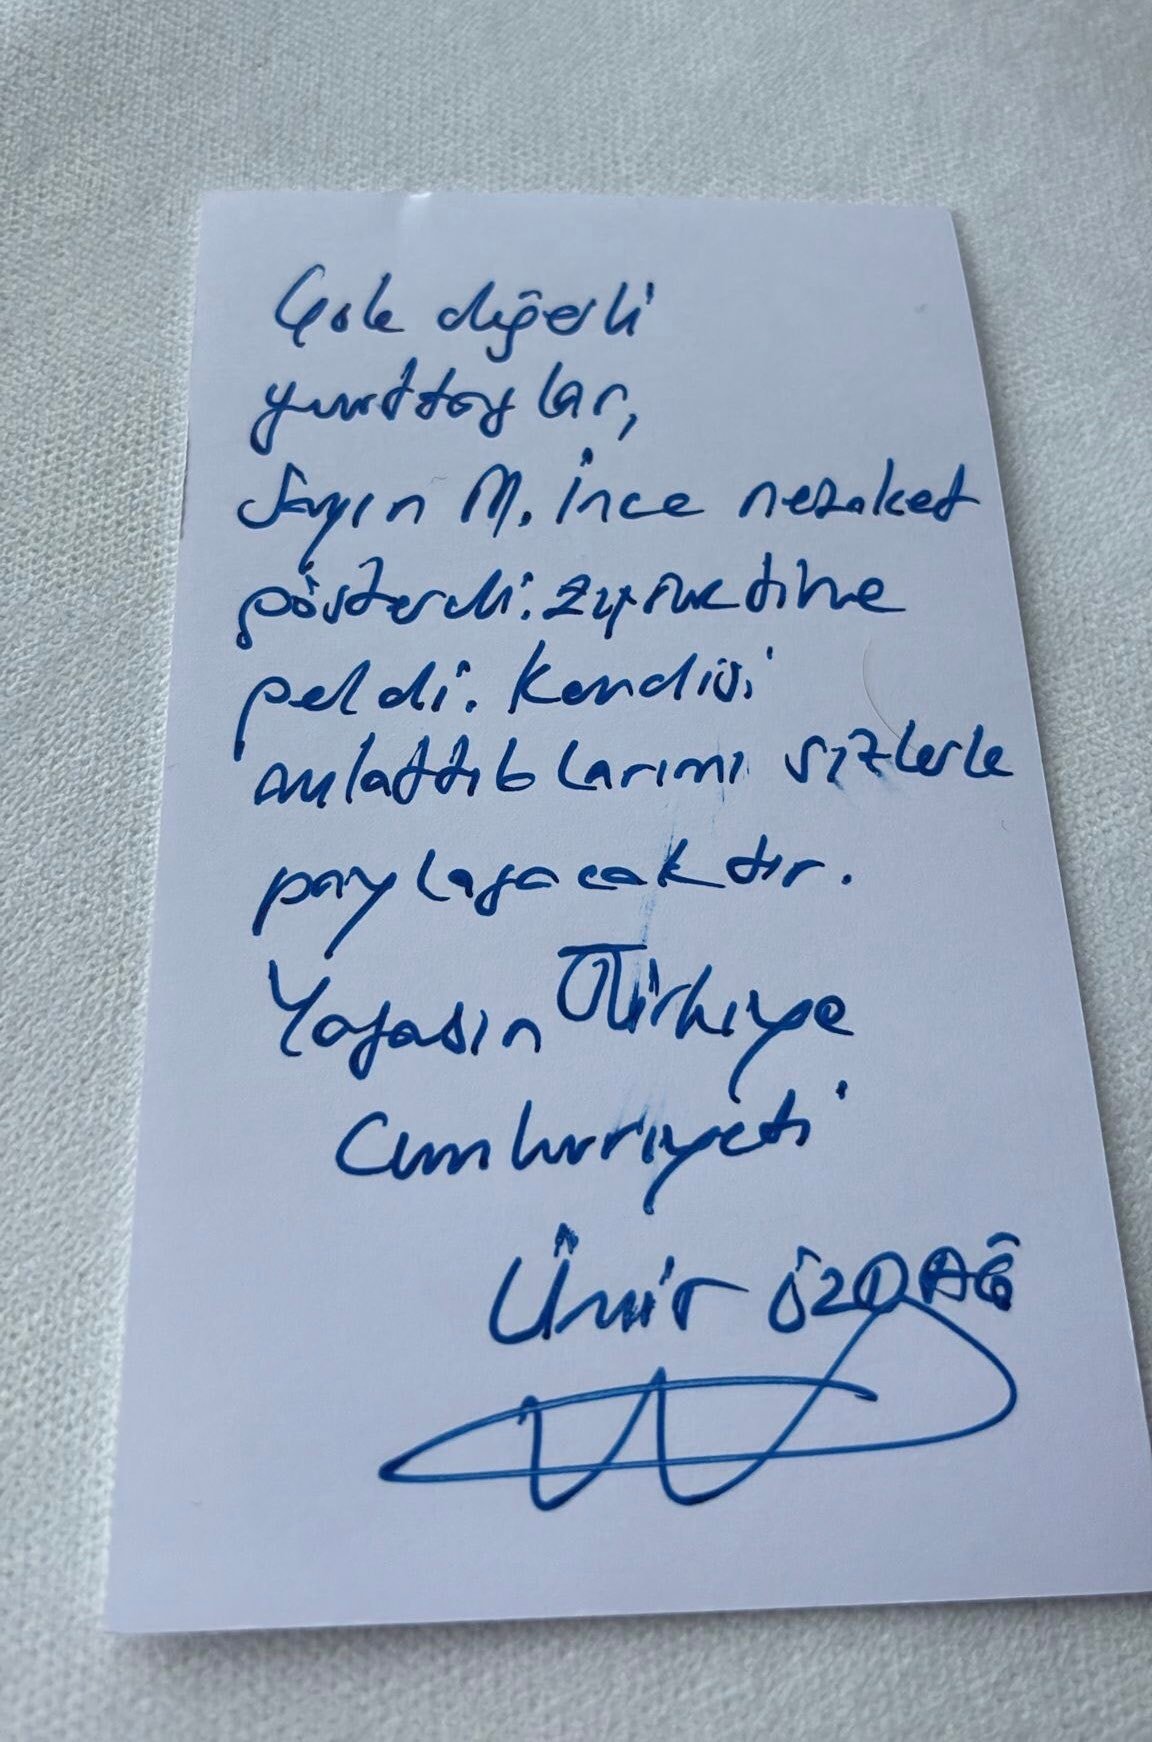 Çok değerli
yurttaşlar,
Sayın M. İnce nezaket
gösterdi. ziyaretime
geldi. Kendisi
anlattıklarımı sizlerle
paylaşacaktır.
Yaşasın Türkiye
Cumhuriyeti
Ümit ÖZDAĞ